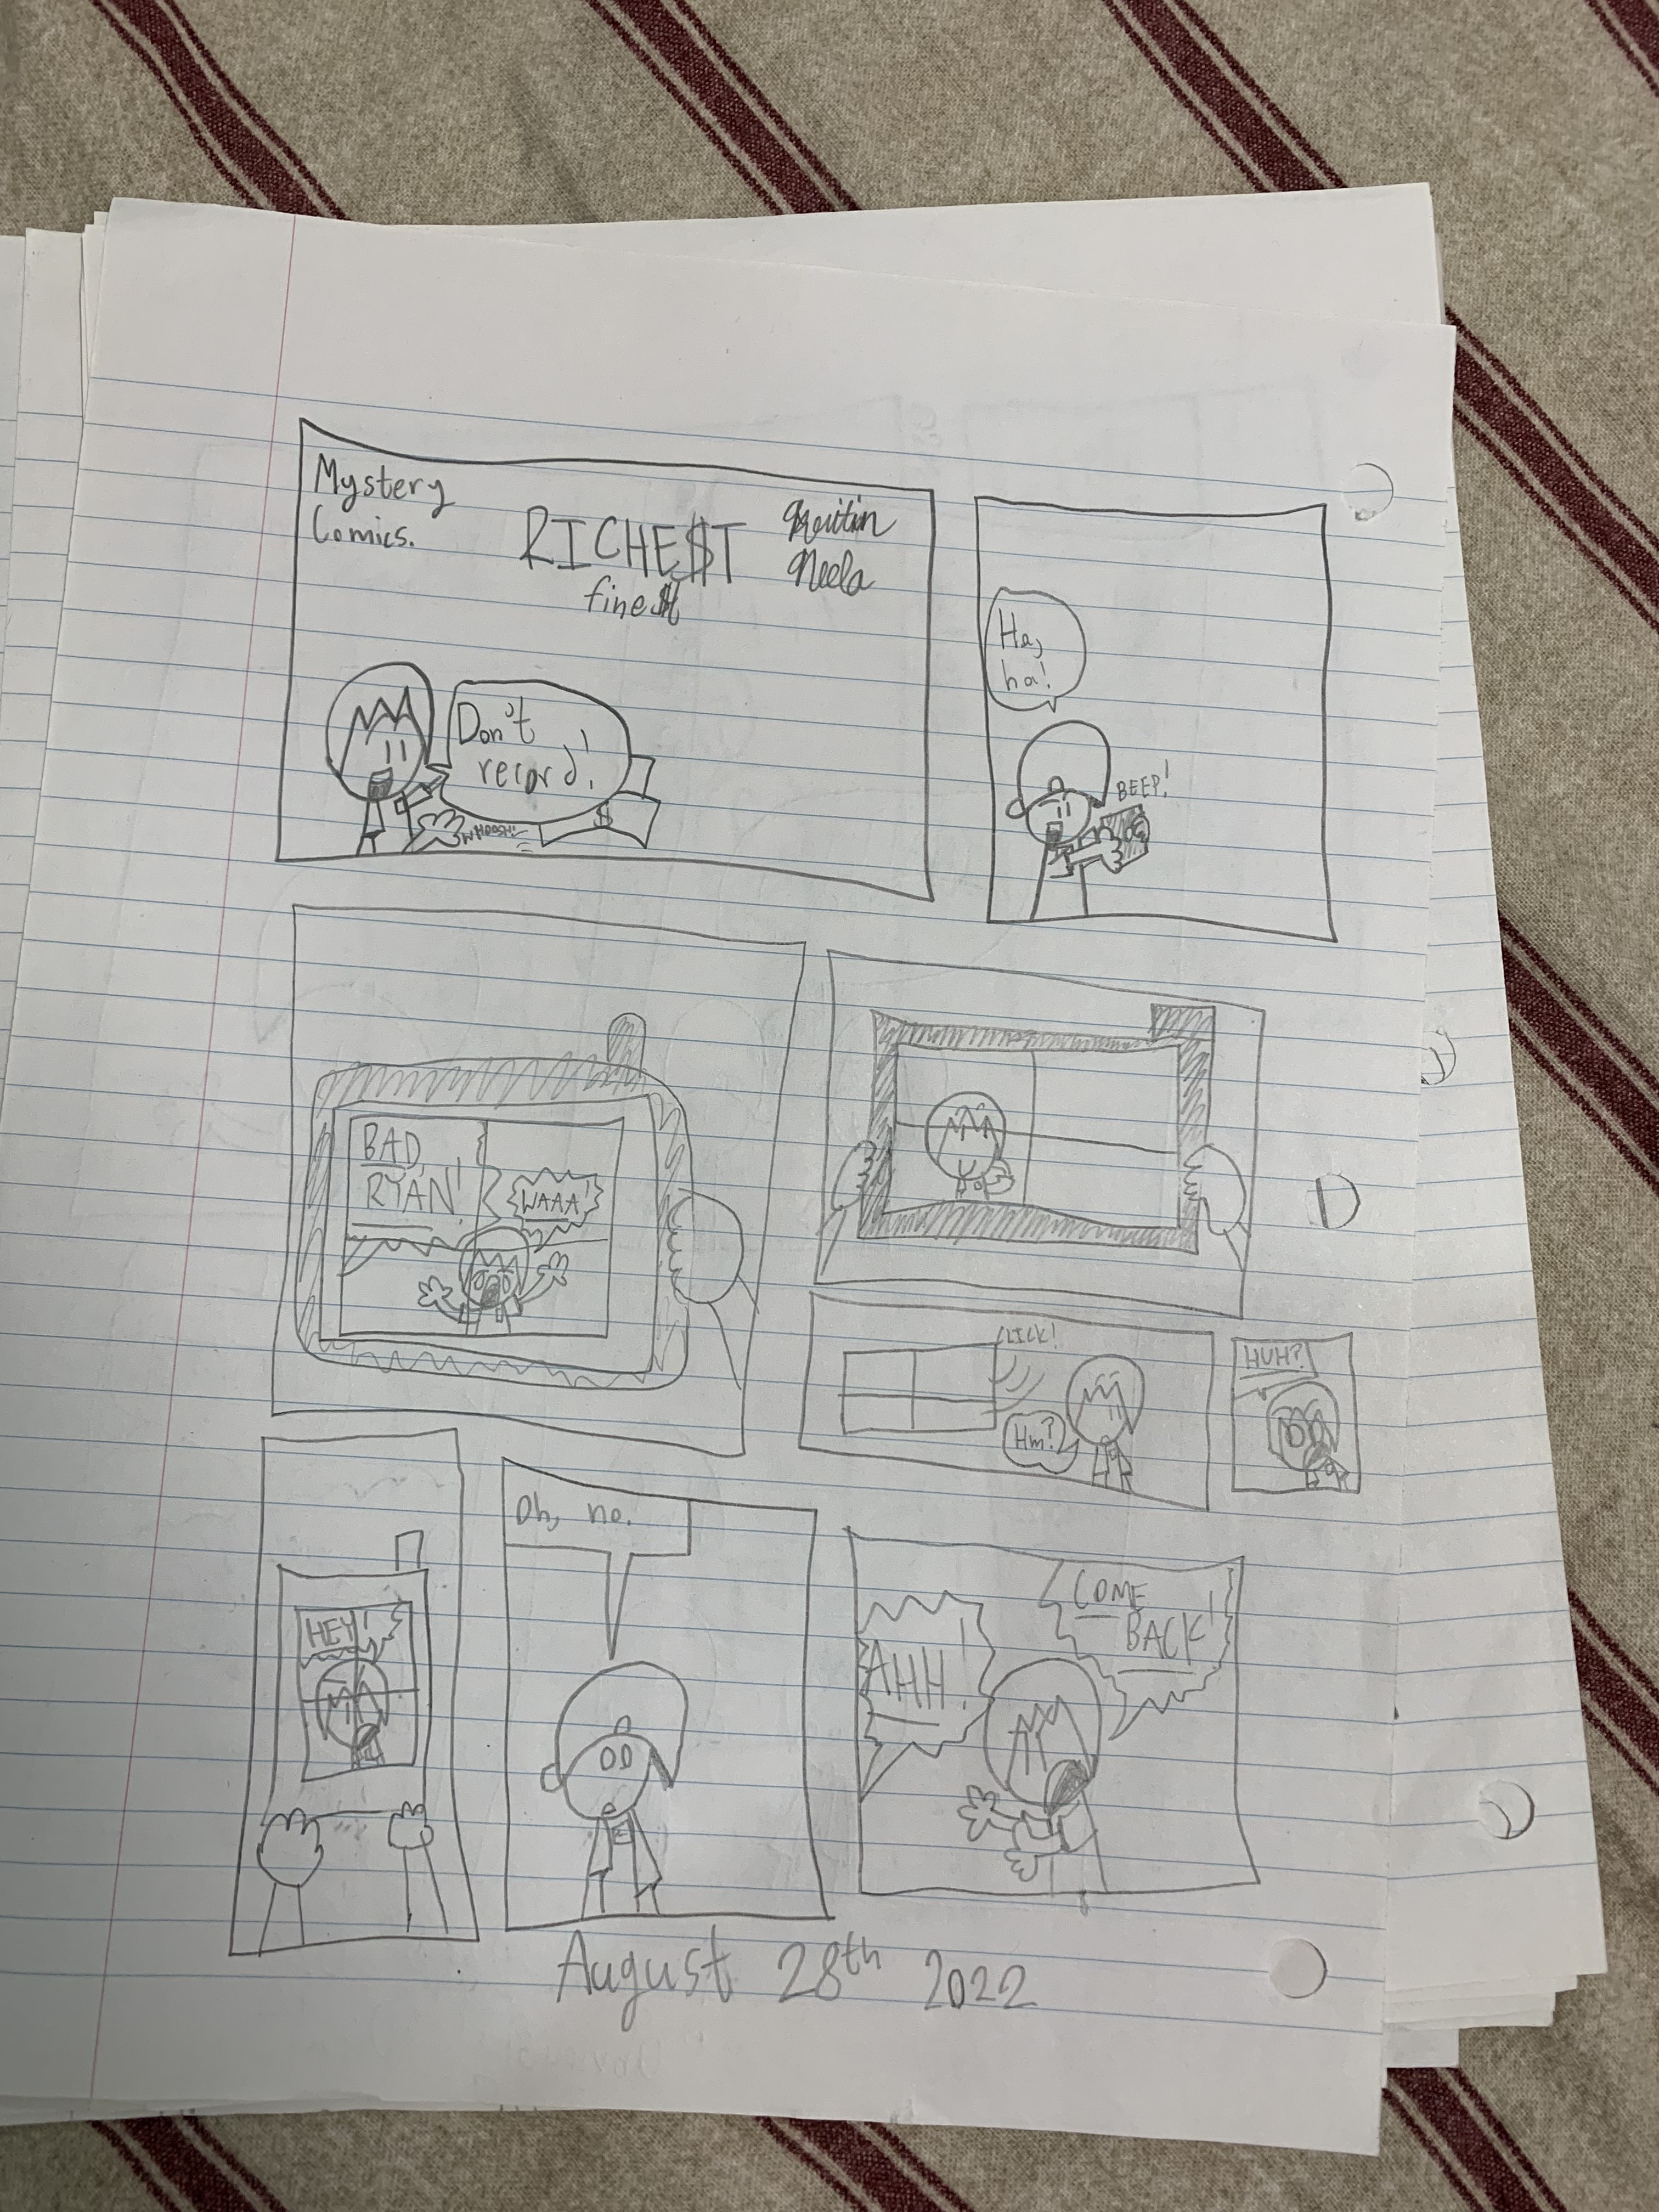 Mystery
Comics.
RICHE$T
fine$t
Neela
Don't
record!
WHOOSH!
$
Ha,
ha!
BEEP!
BAD,
RYAN!
WAAA!
CLICK!
Hm?
HUH?
HEY!
Oh, no.
AHH!
COME
BACK!
August 28th 2022